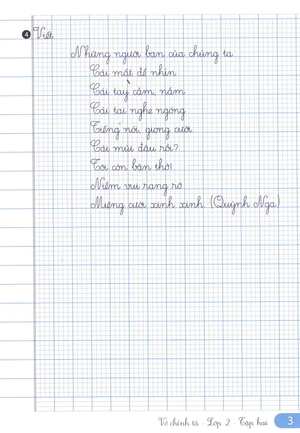 4 Viết
Những người bạn của chúng ta
Cái mắt để nhìn
Cái tay cầm, nắm
Cái tai nghe ngóng
Tiếng nói, giọng cười
Cái mũi đâu rồi?
Tôi còn bận thở!
Niềm vui rạng rỡ
Miệng cười xinh xinh (Quỳnh Nga)
Vở chính tả - Lớp 2 - Tập hai 3